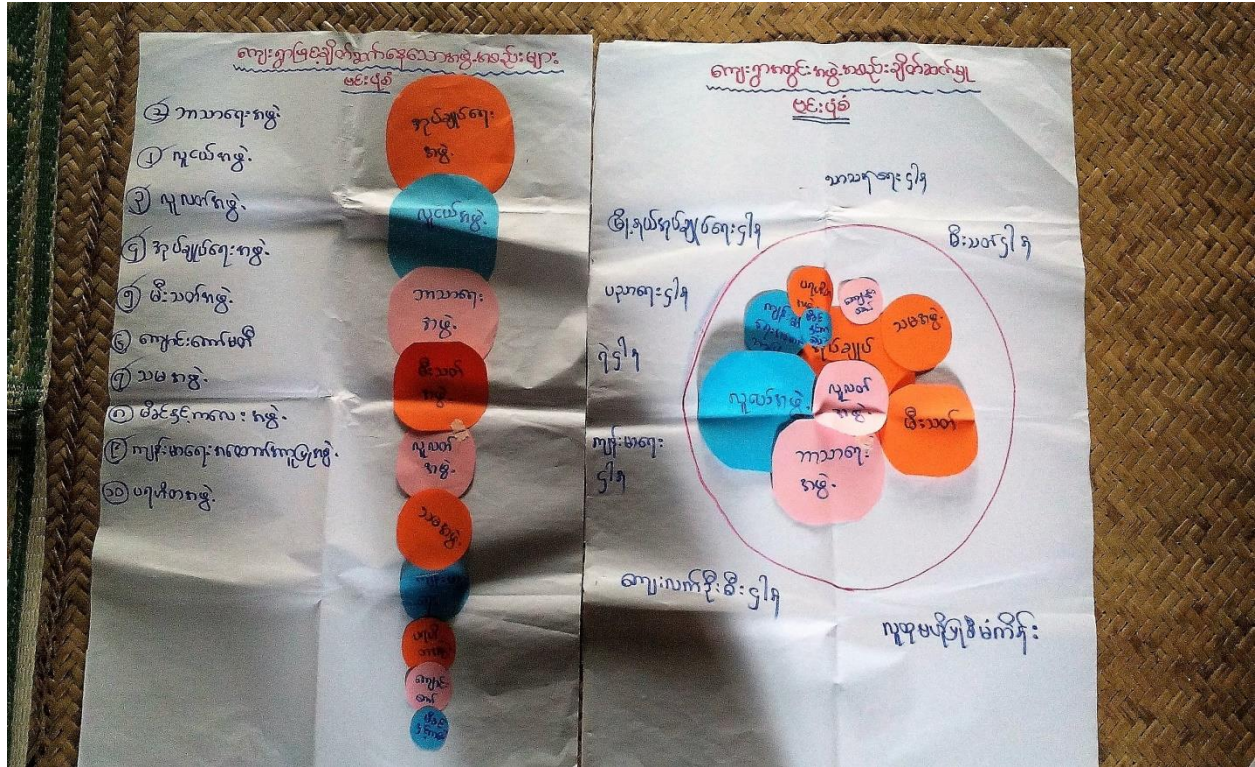 ကျေးရွာဖြင့်ချိတ်ဆက်နေသောအဖွဲ့အစည်းများ
ဗင်းပုံစံ
၂ ဘာသာရေးအဖွဲ့
၁ လူငယ်အဖွဲ့
၃ လူလတ်အဖွဲ့
၄ အုပ်ချုပ်ရေးအဖွဲ့
၅ မီးသတ်အဖွဲ့
၆ ကျောင်းကော်မတီ
၇ သမအဖွဲ့
၈ မိခင်နှင့်ကလေးအဖွဲ့
၉ ကျန်းမာရေးအထောက်အကူပြုအဖွဲ့
၁၀ ပရဟိတအဖွဲ့
အုပ်ချုပ်ရေး
အဖွဲ့
လူငယ်အဖွဲ့
ဘာသာရေး
အဖွဲ့
မီးသတ်
အဖွဲ့
လူလတ်
အဖွဲ့
သမအဖွဲ့
ကျောင်း
ကျေးရွာအတွင်းအဖွဲ့အစည်းချိတ်ဆက်မှု
ဗင်းပုံစံ
သာသနာရေးဌါန
မြို့နယ်အုပ်ချုပ်ရေးဌါန
မီးသတ်ဌါန
ပညာရေးဌါန
ရဲဌါန
ကျန်းမာရေး
ဌါန
ကျေးလက်ဦးစီးဌါန
လူထုဗဟိုပြုစီမံကိန်း
သမအဖွဲ့
အုပ်ချုပ်
လူငယ်အဖွဲ့
လူလတ်
အဖွဲ့
မီးသတ်
ဘာသာရေး
အဖွဲ့